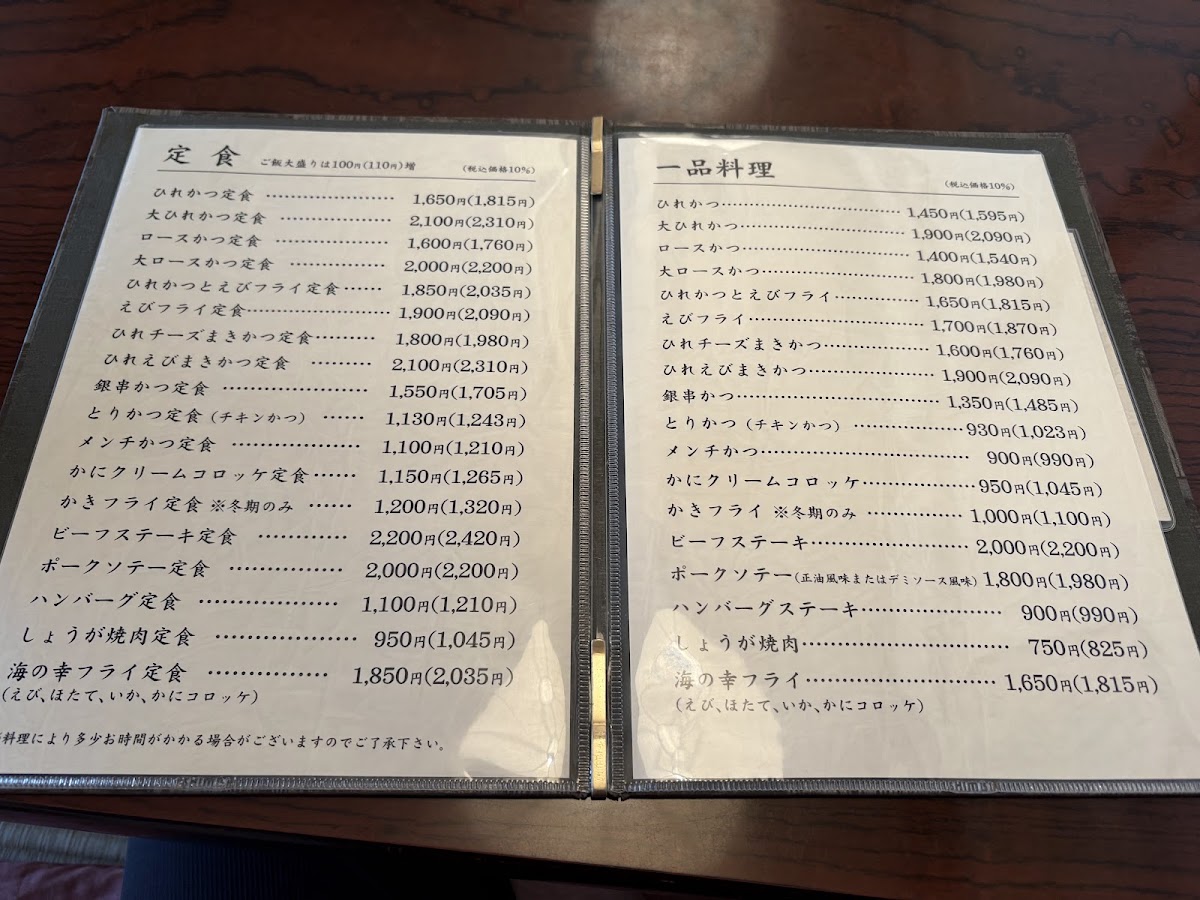 定食 ご飯大盛りは100円(110円)増 (税込価格10%)
ひれかつ定食 …………………… 1,650円(1,815円)
大ひれかつ定食 ………………… 2,100円(2,310円)
ロースかつ定食 ………………… 1,600円(1,760円)
大ロースかつ定食 ……………… 2,000円(2,200円)
ひれかつとえびフライ定食 …… 1,850円(2,035円)
えびフライ定食 ……………………… 1,900円(2,090円)
ひれチーズまきかつ定食 ……… 1,800円(1,980円)
ひれえびまきかつ定食 ……… 2,100円(2,310円)
銀串かつ定食 …………………… 1,550円(1,705円)
とりかつ定食(チキンかつ) …… 1,130円(1,243円)
メンチかつ定食 ………………… 1,100円(1,210円)
かにクリームコロッケ定食 …… 1,150円(1,265円)
かきフライ定食 ※冬期のみ …… 1,200円(1,320円)
ビーフステーキ定食 ………… 2,200円(2,420円)
ポークソテー定食 ……………… 2,000円(2,200円)
ハンバーグ定食 ………………… 1,100円(1,210円)
しょうが焼肉定食 ………………… 950円(1,045円)
海の幸フライ定食 ……………… 1,850円(2,035円)
(えび、ほたて、いか、かにコロッケ)
料理により多少お時間がかかる場合がございますのでご了承下さい。
一品料理 (税込価格10%)
ひれかつ …………………………… 1,450円(1,595円)
大ひれかつ ………………………… 1,900円(2,090円)
ロースかつ ………………………… 1,400円(1,540円)
大ロースかつ ……………………… 1,800円(1,980円)
ひれかつとえびフライ …………… 1,650円(1,815円)
えびフライ ………………………… 1,700円(1,870円)
ひれチーズまきかつ ……………… 1,600円(1,760円)
ひれえびまきかつ ………………… 1,900円(2,090円)
銀串かつ …………………………… 1,350円(1,485円)
とりかつ(チキンかつ) ……………… 930円(1,023円)
メンチかつ ………………………… 900円(990円)
かにクリームコロッケ …………… 950円(1,045円)
かきフライ ※冬期のみ …………… 1,000円(1,100円)
ビーフステーキ …………………… 2,000円(2,200円)
ポークソテー(正油風味またはデミソース風味) 1,800円(1,980円)
ハンバーグステーキ ……………… 900円(990円)
しょうが焼肉 ……………………… 750円(825円)
海の幸フライ ……………………… 1,650円(1,815円)
(えび、ほたて、いか、かにコロッケ)